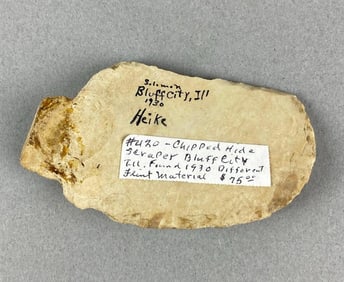 Solomon
Bluff City, Ill
1930
Heike
#420 - Chipped Hide
Scraper Bluff City
Ill. Found 1930 Different
Flint Material $75⁰⁰